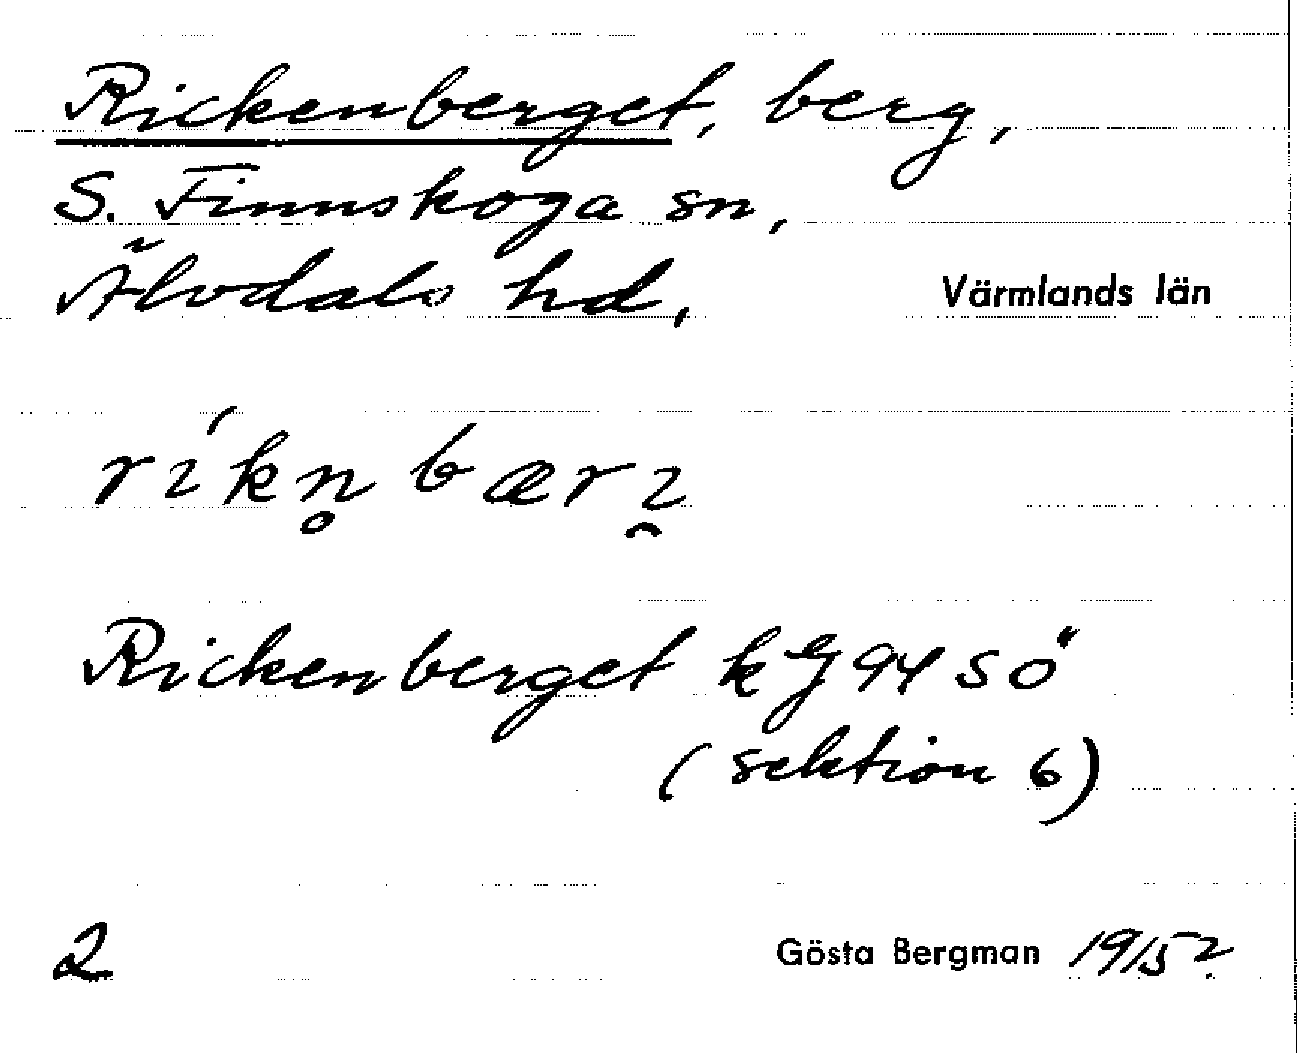 Rickenberget, berg,
S. Finnskoga sn,
Älvdals hd, Värmlands län
ríkn̥bærı̯
Rickenberget kg 94 SÖ
(sektion 6)
2 Gösta Bergman 1915?